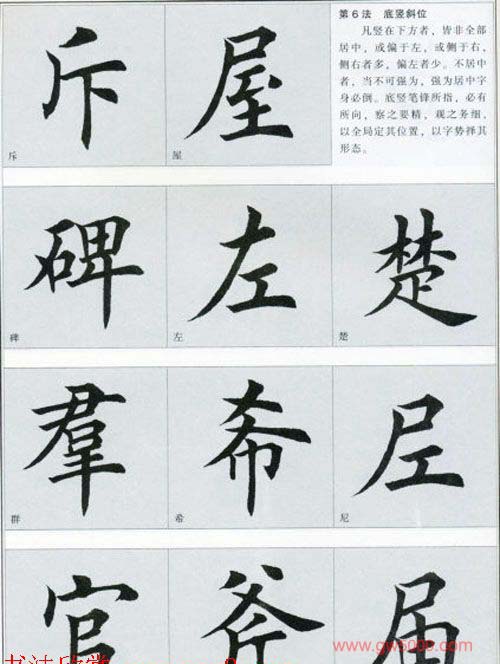 第6法 底竖斜位
凡竖在下方者，皆非全部
居中，或偏于左，或侧于右，
侧右者多，偏左者少。不居中
者，当不可强为，强为居中字
身必倒。底竖笔锋所指，必有
所向，察之要精，观之务细，
以全局定其位置，以字势择其
形态。
斥 屋
斥 屋
碑 左 楚
碑 左 楚
羣 希 𡰥
群 希 尼
官 斧 届
www.gw5000.com